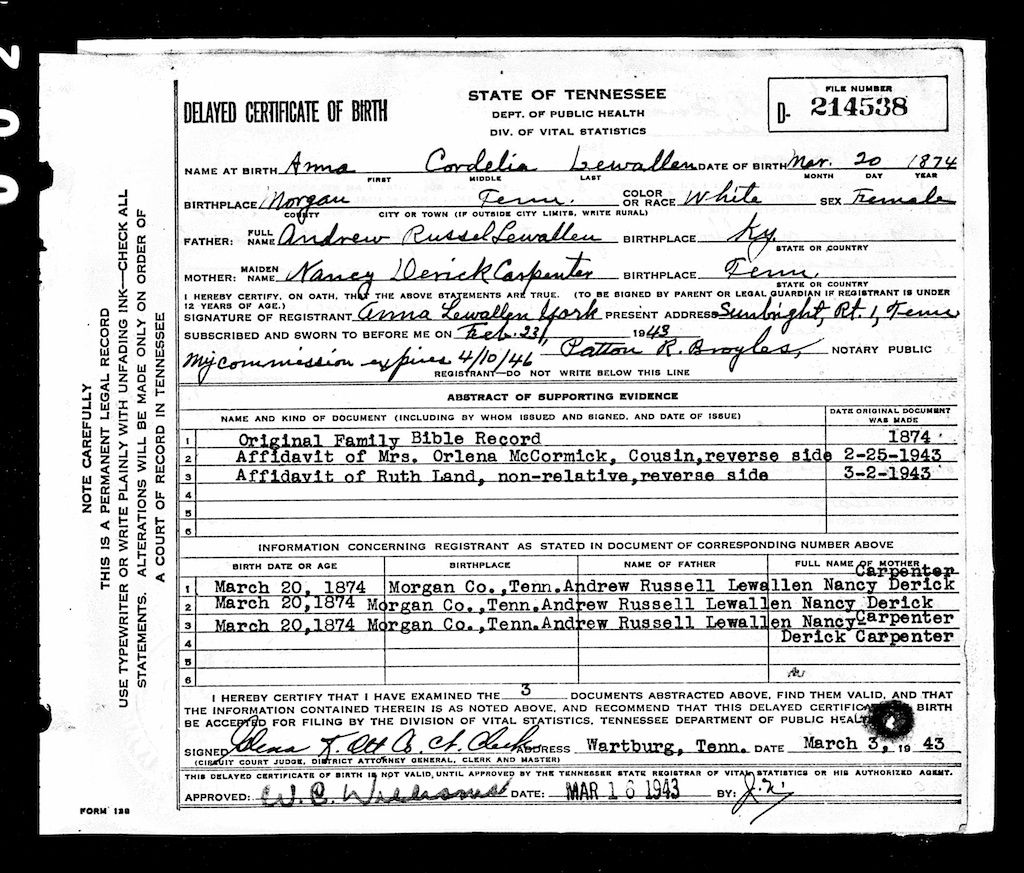 DELAYED CERTIFICATE OF BIRTH
STATE OF TENNESSEE
DEPT. OF PUBLIC HEALTH
DIV. OF VITAL STATISTICS
FILE NUMBER
D- 214538
NAME AT BIRTH Anna Cordelia Lewallen DATE OF BIRTH Mar. 20 1874
FIRST MIDDLE LAST MONTH DAY YEAR
BIRTHPLACE Morgan Tenn. COLOR OR RACE White SEX Female
COUNTY CITY OR TOWN (IF OUTSIDE CITY LIMITS, WRITE RURAL)
FATHER: FULL NAME Andrew Russel Lewallen BIRTHPLACE Ky.
STATE OR COUNTRY
MOTHER: MAIDEN NAME Nancy Derick Carpenter BIRTHPLACE Tenn.
STATE OR COUNTRY
I HEREBY CERTIFY, ON OATH, THAT THE ABOVE STATEMENTS ARE TRUE. (TO BE SIGNED BY PARENT OR LEGAL GUARDIAN IF REGISTRANT IS UNDER
12 YEARS OF AGE.)
SIGNATURE OF REGISTRANT Anna Lewallen York PRESENT ADDRESS Sunbright, Rt. 1, Tenn
SUBSCRIBED AND SWORN TO BEFORE ME ON Feb. 23, 1943
My commission expires 4/10/46 Patton R. Broyles, NOTARY PUBLIC
REGISTRANT—DO NOT WRITE BELOW THIS LINE
ABSTRACT OF SUPPORTING EVIDENCE
NAME AND KIND OF DOCUMENT (INCLUDING BY WHOM ISSUED AND SIGNED, AND DATE OF ISSUE) DATE ORIGINAL DOCUMENT WAS MADE
1 Original Family Bible Record 1874
2 Affidavit of Mrs. Orlena McCormick, Cousin,reverse side 2-25-1943
3 Affidavit of Ruth Land, non-relative,reverse side 3-2-1943
4
5
6
INFORMATION CONCERNING REGISTRANT AS STATED IN DOCUMENT OF CORRESPONDING NUMBER ABOVE
BIRTH DATE OR AGE BIRTHPLACE NAME OF FATHER FULL NAME OF MOTHER
Carpenter
1 March 20, 1874 Morgan Co.,Tenn. Andrew Russell Lewallen Nancy Derick
2 March 20,1874 Morgan Co.,Tenn. Andrew Russell Lewallen Nancy Derick
3 March 20,1874 Morgan Co.,Tenn. Andrew Russell Lewallen Nancy Carpenter
4 Derick Carpenter
5
6
I HEREBY CERTIFY THAT I HAVE EXAMINED THE 3 DOCUMENTS ABSTRACTED ABOVE, FIND THEM VALID, AND THAT
THE INFORMATION CONTAINED THEREIN IS AS NOTED ABOVE, AND RECOMMEND THAT THIS DELAYED CERTIFICATE OF BIRTH
BE ACCEPTED FOR FILING BY THE DIVISION OF VITAL STATISTICS, TENNESSEE DEPARTMENT OF PUBLIC HEALTH
SIGNED ADDRESS Wartburg, Tenn. DATE March 3, 1943
(CIRCUIT COURT JUDGE, DISTRICT ATTORNEY GENERAL, CLERK AND MASTER)
THIS DELAYED CERTIFICATE OF BIRTH IS NOT VALID UNTIL APPROVED BY THE TENNESSEE STATE REGISTRAR OF VITAL STATISTICS OR HIS AUTHORIZED AGENT.
APPROVED: DATE: MAR 16 1943 BY:
FORM 128
NOTE CAREFULLY
THIS IS A PERMANENT LEGAL RECORD
USE TYPEWRITER OR WRITE PLAINLY WITH UNFADING INK—CHECK ALL
STATEMENTS. ALTERATIONS WILL BE MADE ONLY ON ORDER OF
A COURT OF RECORD IN TENNESSEE